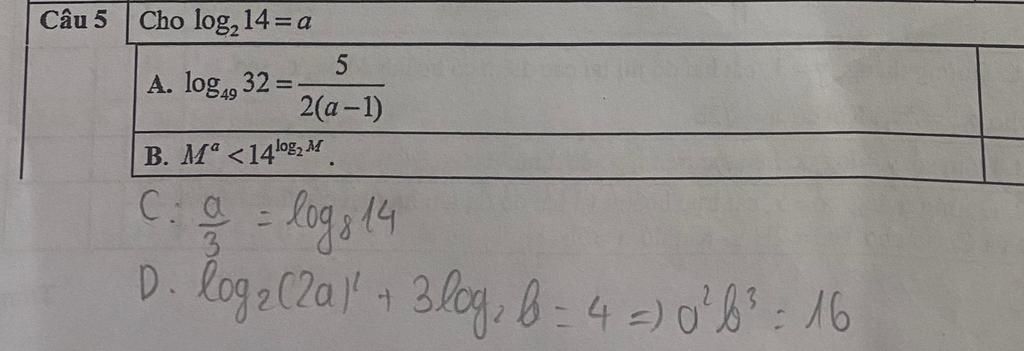 Câu 5 Cho log₂ 14 = a
A. log₄₉ 32 = 5/(2(a−1))
B. Mᵃ < 14^(log₂ M).
C: a/3 = log₈ 14
D. log₂(2a)' + 3log₂ b = 4 => a²b³ = 16